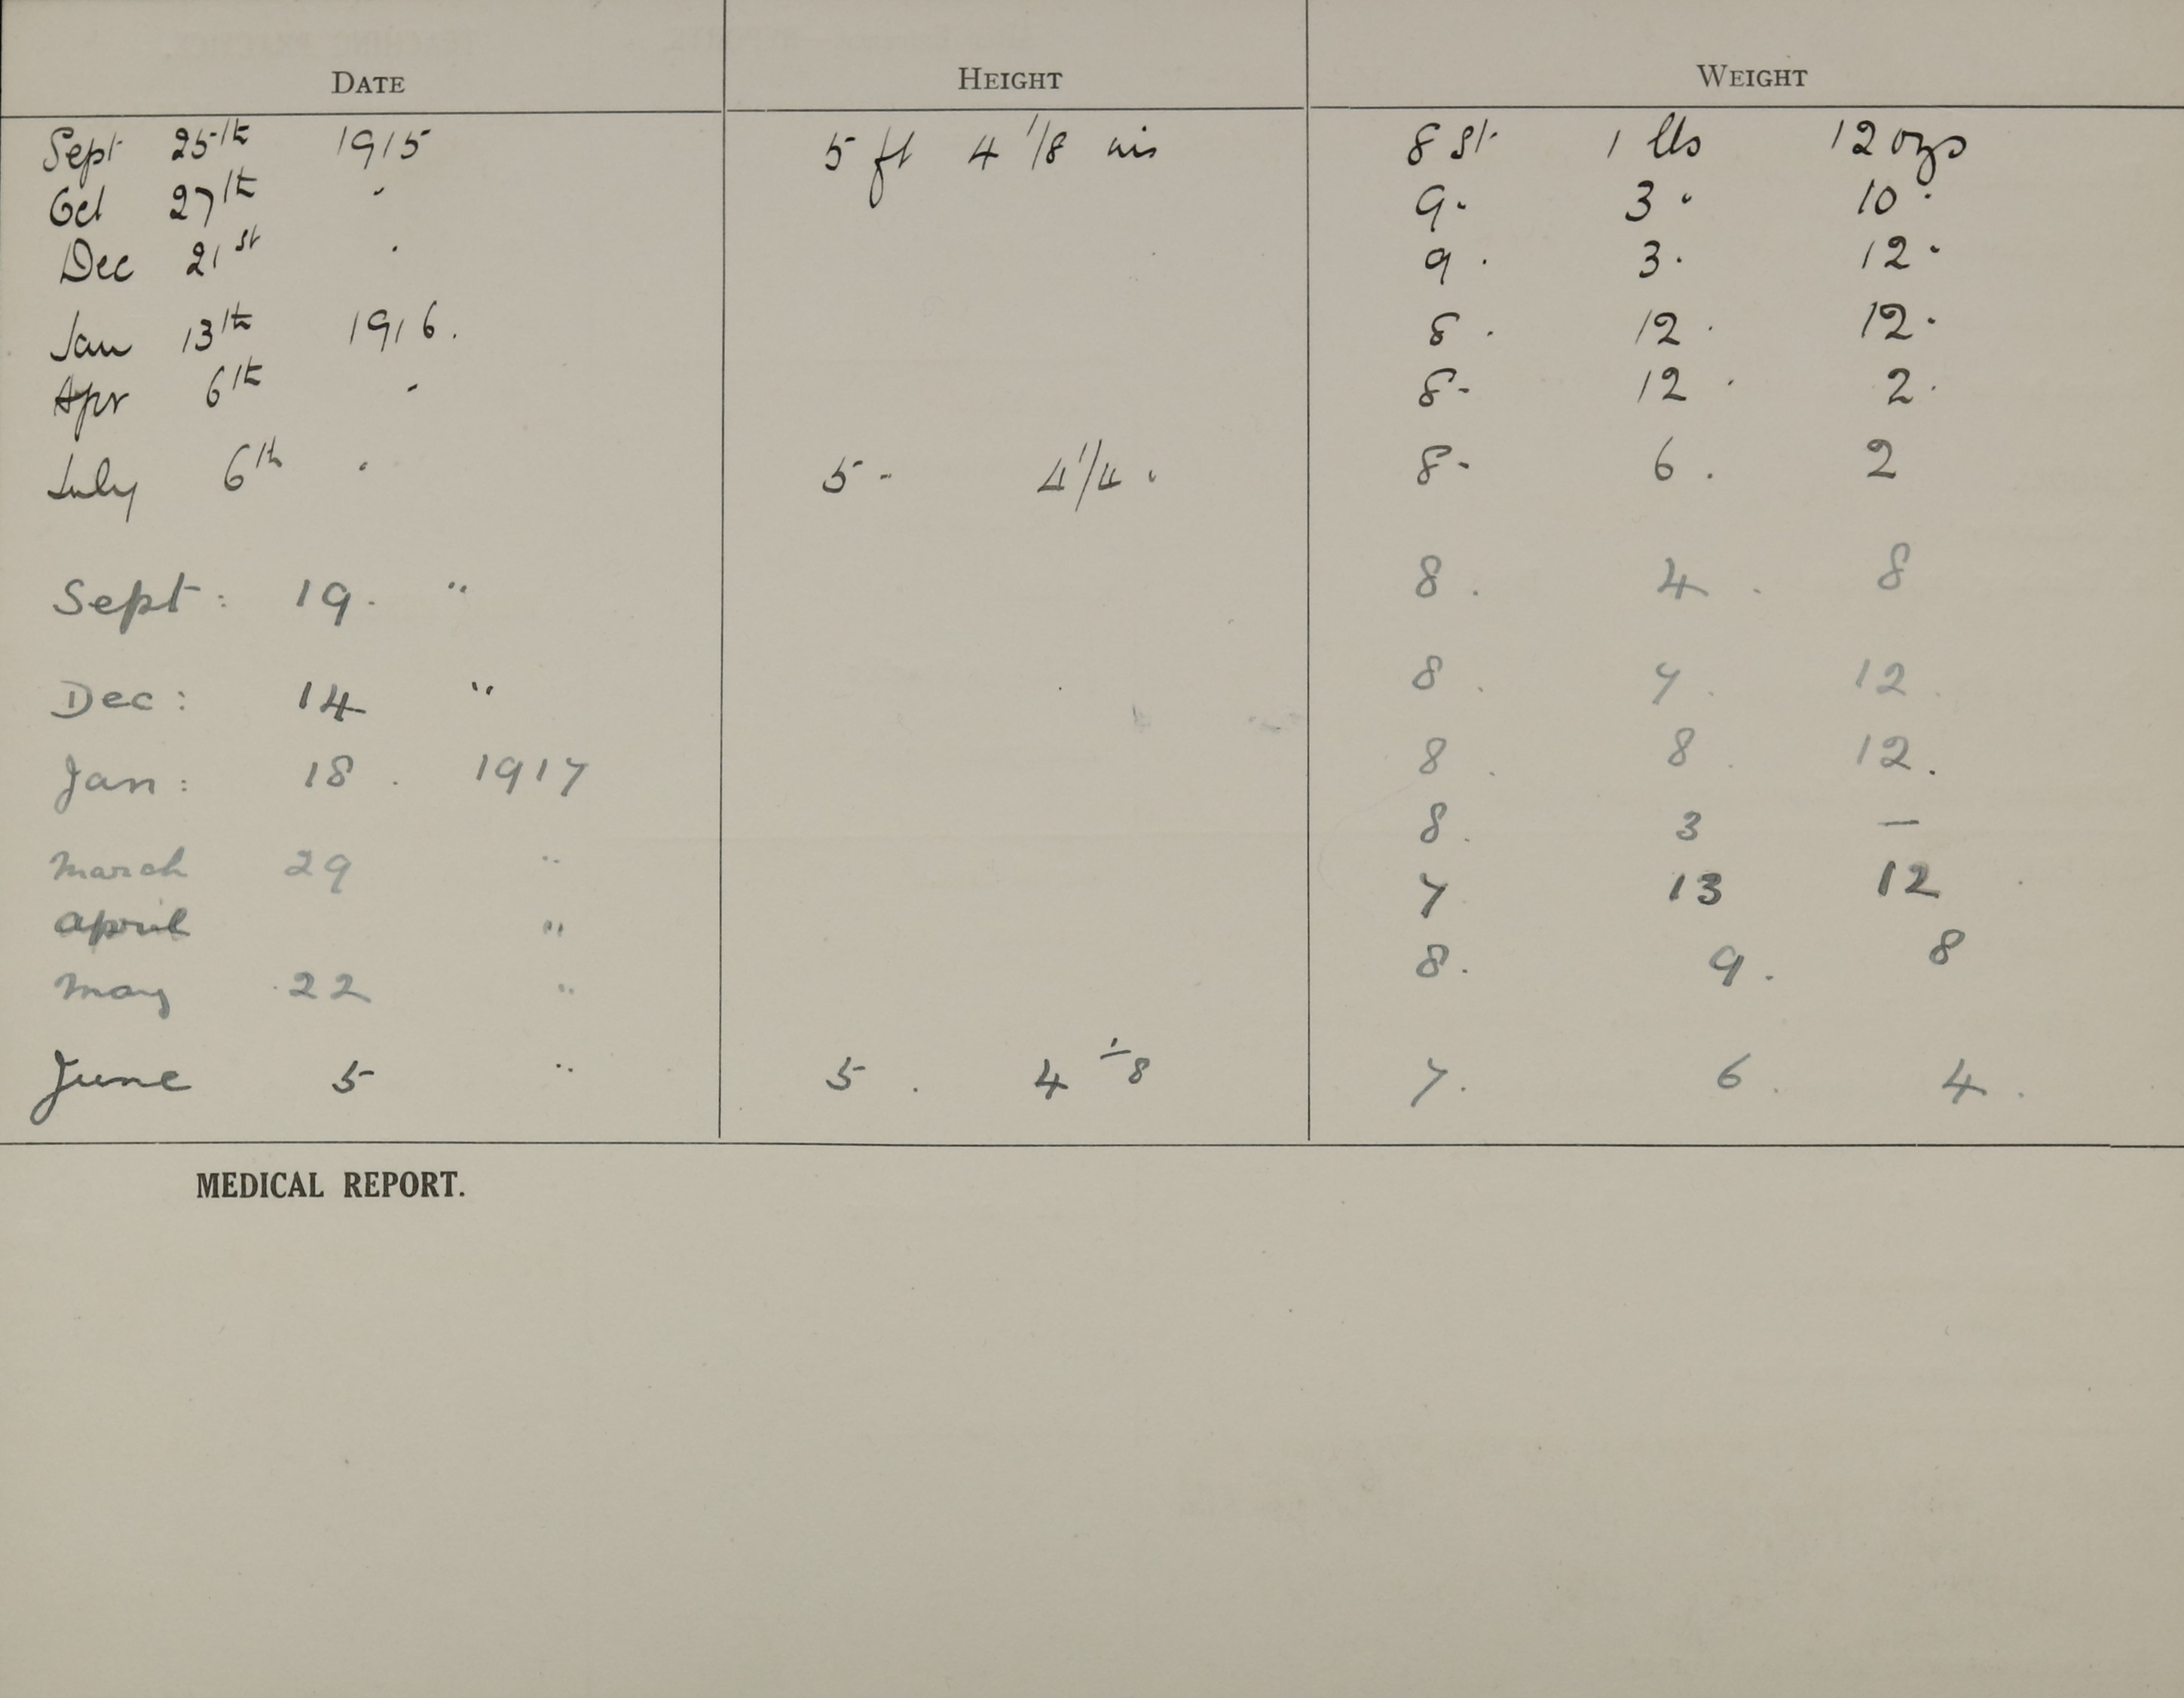 DATE HEIGHT WEIGHT
Sept 25th 1915 5 ft 4 1/8 ins 8 st 1 lbs 12 ozs
Oct 27th " 9 " 3 " 10 "
Dec 21st " 9 " 3 " 12 "
Jan 13th 1916. 8 " 12 " 12 "
Apr 6th " 8 " 12 " 2 "
July 6th " 5 " 4 1/4 " 8 " 6 . 2
Sept: 19. " 8 . 4 . 8
Dec: 14 " 8 . 7 . 12 .
Jan: 18 . 1917 8 . 8 . 12 .
March 29 " 8 . 3 —
April " 7 13 12
May 22 " 8 . 9 . 8
June 5 " 5 . 4 1/8 7 . 6 . 4 .
MEDICAL REPORT.